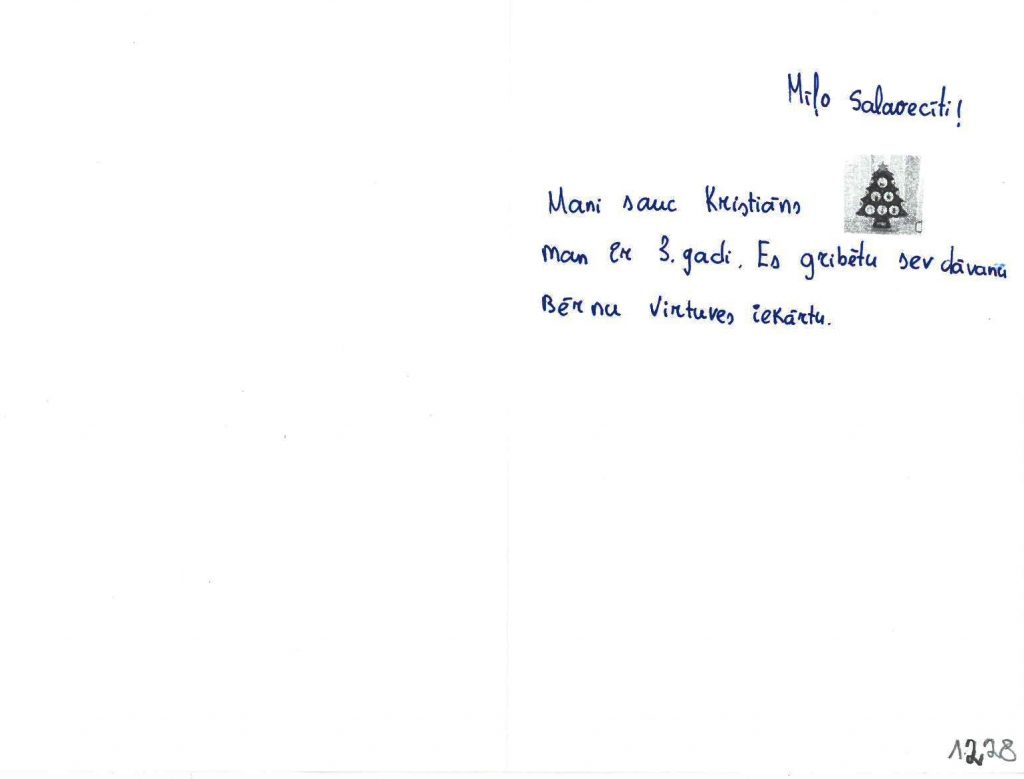 Mīļo Salavecīti!
Mani sauc Kristiāns
man ir 3. gadi. Es gribētu sev dāvanu
Bērnu virtuves iekārtu.
1228